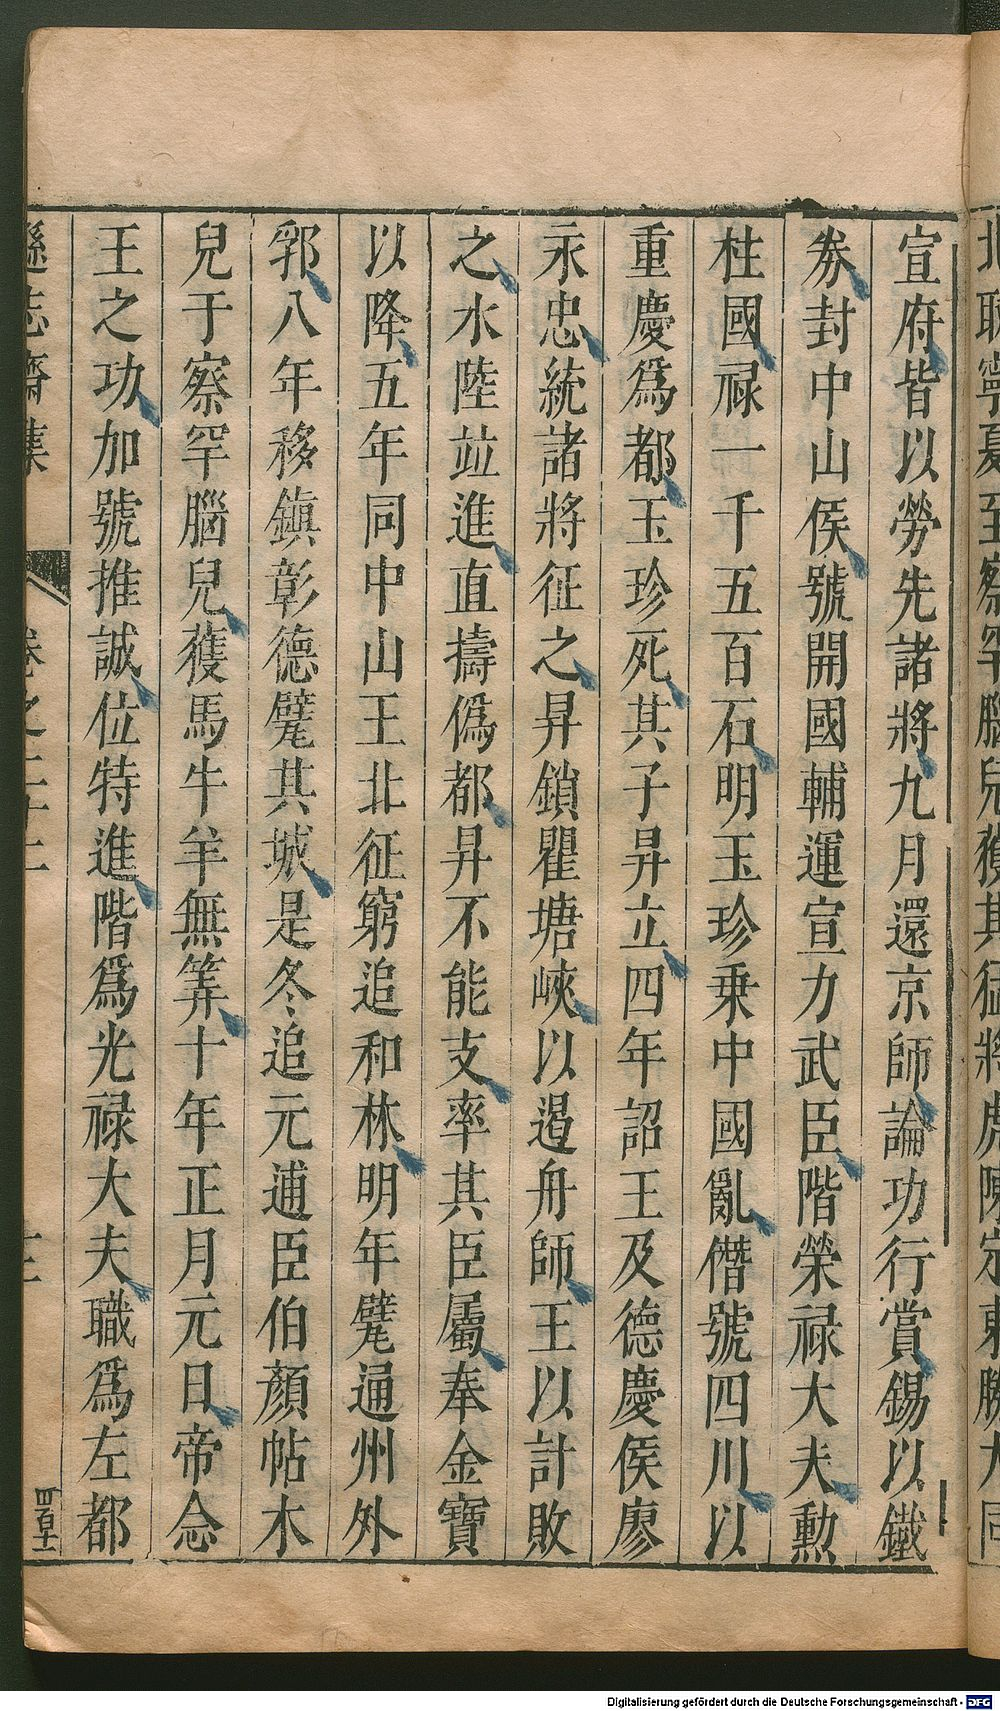 宣府皆以勞先諸將九月還京師論功行賞錫以鐵
券封中山侯號開國輔運宣力武臣階榮禄大夫勲
柱國禄一千五百石明玉珍乗中國亂僭號四川以
重慶爲都玉珍死其子昇立四年詔王及德慶侯廖
永忠統諸將征之昇鎖瞿塘峽以遏舟師王以計敗
之水陸竝進直擣僞都昇不能支率其臣屬奉金寶
以降五年同中山王北征窮追和林明年甓通州外
郛八年移鎮彰德甓其城是冬追元逋臣伯顏帖木
兒于察罕腦兒獲馬牛羊無筭十年正月元日帝念
王之功加號推誠位特進階爲光禄大夫職爲左都
遜志齋集
卷之二十二
Digitalisierung gefördert durch die Deutsche Forschungsgemeinschaft - DFG